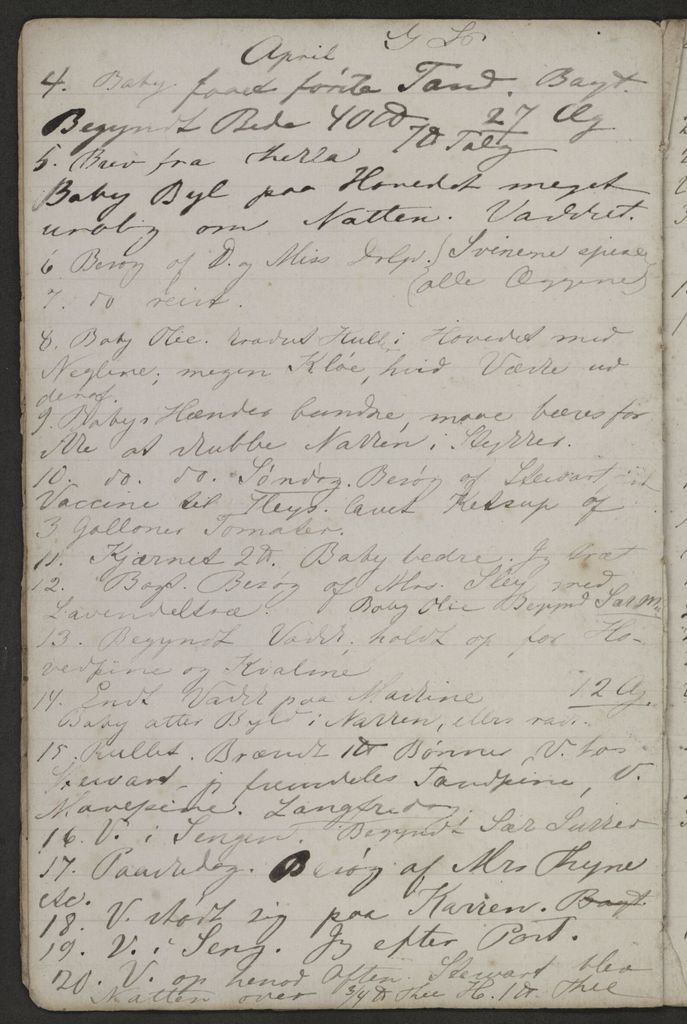 April
4. Baby faaet første Tand. Bagt.
Begyndt Bede 40 ℔ 27 Æg
5. Brev fra Thella 7 ℔ Talg
Baby Byl paa Hovedet meget
urolig om Natten. Vasket.
6 Besøg af D. og Miss Svinene spise
7. do reist. alle Æggene
8. Baby Olie. Hull i Hovedet med
Neglene; megen Kløe, hvid Vædke ud
deraf.
9. Babys Hænder bundne, maae bæres for
ikke at skrubbe Nakken i Stykker.
10. do. do. Søndag. Besøg af Stewart
Vaccine til Sleys. Lavet Ketsup af
3 Galloner Tomater.
11. Kjærnet 2 ℔. Baby bedre. Jg træt
12. Bagt. Besøg af Mrs. Sley med
Lavendeltræ. Baby Olie Begynd
13. Begyndt Vask, holdt op for Ho-
vedpine og Kvalme
14. Endt Vask paa Maskine 12 Æg.
Baby atter Byld i Nakken, ellers rask.
15. Rullet. Brændt 1 ℔ Bønner, V. hos
Stewart. jg fremdeles Tandpine, V.
Mavepine. Langfredag.
16. V. i Sengen. Begyndt
17. Paaskedag. Besøg af Mrs Thyne
etc.
18. V. stødt sig paa Karren. Bagt.
19. V. i Seng. Jg efter Post.
20. V. op henad Aften. Stewart blev
Natten over 3/4 ℔ Thee H. 1 ℔. Thee